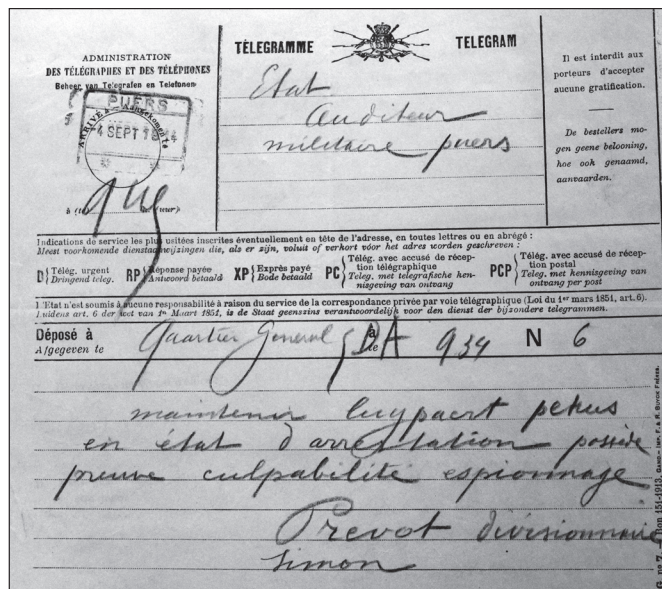 ADMINISTRATION
DES TÉLÉGRAPHES ET DES TÉLÉPHONES
Beheer van Telegrafen en Telefonen
PUERS
ARRIVÉE - Aangekomen
4 SEPT 1914
9 45
à (te) (uur)
TÉLEGRAMME TELEGRAM
Etat
Auditeur
militaire puers
Il est interdit aux
porteurs d'accepter
aucune gratification.
De bestellers mo-
gen geene belooning,
hoe ook genaamd,
aanvaarden.
Indications de service les plus usitées inscrites éventuellement en tête de l'adresse, en toutes lettres ou en abrégé :
Meest voorkomende dienstaanwijzingen die, als er zijn, voluit of verkort vóór het adres worden geschreven :
D Télég. urgent RP Réponse payée XP Exprès payé PC Télég. avec accusé de récep- PCP Télég. avec accusé de récep-
Dringend teleg. Antwoord betaald Bode betaald tion télégraphique tion postal
Teleg. met telegrafische ken- Teleg. met kennisgeving van
nisgeving van ontvang ontvang per post
L'Etat n'est soumis à aucune responsabilité à raison du service de la correspondance privée par voie télégraphique (Loi du 1er mars 1851, art. 6).
Luidens art. 6 der wet van 1n Maart 1851, is de Staat geenszins verantwoordelijk voor den dienst der bijzondere telegrammen.
Déposé à Quartier General à DA 934 N 6
Afgegeven te te
maintenir luypaert petrus
en état d'arrestation possède
preuve culpabilité espionnage
Prevot divisionnaire
Simon